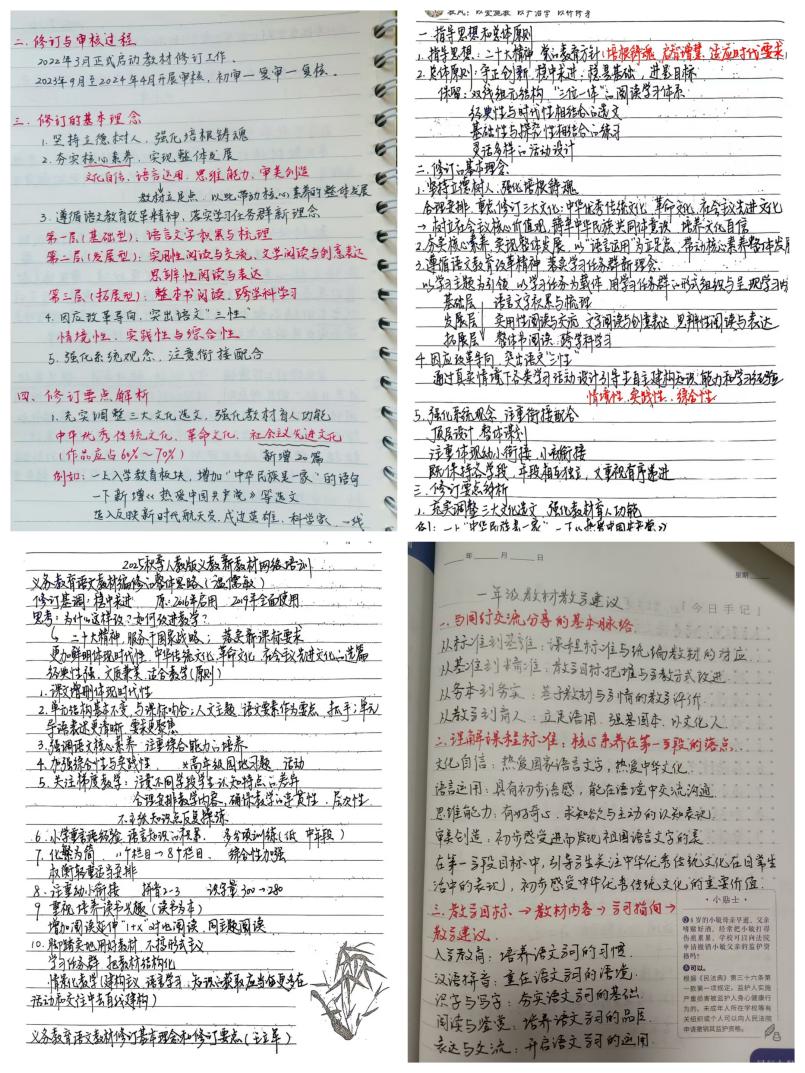 二. 修订与审核过程
2022年3月正式启动教材修订工作.
2023年9月至2024年4月开展审核, 初审一复审一复核.
三. 修订的基本理念
1. 坚持立德树人, 强化培根铸魂
2. 夯实核心素养, 实现整体发展
文化自信、语言运用、思维能力、审美创造
教材立足点, 以此带动核心素养的整体发展
3. 遵循语文教育改革精神, 落实学习任务群新理念
第一层(基础型): 语言文字积累与梳理
第二层(发展型): 实用性阅读与交流、文学阅读与创意表达
思辨性阅读与表达
第三层(拓展型): 整本书阅读、跨学科学习
4. 因应改革导向, 突出语文"三性"
情境性、实践性与综合性
5. 强化系统观念, 注重衔接配合
四、修订要点解析
1. 充实调整三大文化选文, 强化教材育人功能
中华优秀传统文化、革命文化、社会主义先进文化
(作品应占60%~70%) 新增20篇
例如: 一上入学教育板块, 增加"中华民族是一家"的语句
一下新增《热爱中国共产党》等选文
选入反映新时代航天员、戍边英雄、科学家、一线
一. 指导思想和总体原则
1. 指导思想: 二十大精神 党的教育方针(培根铸魂, 启智增慧, 适应时代要求
2. 总体原则: 守正创新, 稳中求进; 稳是基础, 进是目标
体现: 双线组元结构, "三位一体"的阅读学习体系
经典性与时代性相结合的选文
基础性与探究性相结合的练习
灵活多样的活动设计
二. 修订的基本理念
1. 坚持立德树人, 强化培根铸魂
合理安排, 重点修订三大文化: 中华优秀传统文化, 革命文化, 社会主义先进文化
→ 树立社会主义核心价值观, 铸牢中华民族共同体意识, 培养文化自信
2. 夯实核心素养 实现整体发展, 以"语言运用"为立足点, 带动核心素养整体发展
3. 遵循语文教育改革精神 落实学习任务群新理念.
以学习主题为引领, 以学习任务为载体, 用学习任务群的形式组织与呈现学习内
基础层 语言文字积累与梳理
发展层 实用性阅读与交流 文学阅读与创意表达 思辨性阅读与表达
拓展层 整本书阅读 跨学科学习
4. 因应改革导向, 突出语文"三性"
通过真实情境下各类学习活动设计引导学生自主建构知识, 能力和学习经验
情境性, 实践性, 综合性
5. 强化系统观念 注重衔接配合
顶层设计 整体谋划
注重体现幼小衔接, 小初衔接
既保持各学段, 年段相互独立, 又重视有序递进
三. 修订要点解析
1. 充实调整三大文化选文 强化教材育人功能
2025秋季人教版义教新教材网络培训
义务教育语文教材编修的整体思路(温儒敏)
修订基调: 稳中求进 原: 2016年启用 2019年全面使用
思考: 为什么这样改? 如何改进教学?
二十大精神, 服务于国家战略; 落实新课标要求
更加鲜明体现时代性, 中华传统文化, 革命文化, 社会主义先进文化的选篇
经典性强, 文质兼美, 适合教学(原则)
1. 课文增删体现时代性
2. 单元结构基本不变, 与课标吻合; 人文主题 语文要素作为要点, 抓手; 单元
导语表述更清晰, 要求更聚焦
3. 强调语文核心素养 注重综合能力的培养
4. 加强综合性与实践性, *高年级园地习题, 活动
5. 关注梯度教学: 注意不同学段学生认知特点的差异
合理安排教学内容, 确保教学的连贯性, 层次性
不主张知识点反复操练
6. 小学重言语经验, 语言知识的积累, 多分项训练(低 中年段)
7. 化繁为简, 11个栏目→8个栏目, 综合性加强
权衡轻重适当安排
8. 注重幼小衔接 拼音2-3 识字量 300→280
9. 重视培养读书兴趣(读书为本)
增加阅读延伸 "1+x" 对比阅读, 同主题阅读
10. 脚踏实地用好教材, 不搞形式主义
学习任务群: 把教材结构化
情景化教学(建构主义, 语言学习, 知识的获取应当伴更多在
活动和交往中去自我建构)
义务教育语文教材修订基本理念和修订要点(王立军)
年 月 日
星期
一年级教材教学建议
「今日手记」
一. 与同行交流分享的基本脉络
从标准到基准: 课程标准与统编教材的对应
从基准到精准: 教学目标把握与教学方式改进
从务本到务实: 基于教材与学情的教学评价
从教学到育人: 立足语用, 强基固本, 以文化人
二. 理解课程标准: 核心素养在第一学段的落点
文化自信: 热爱国家语言文字, 热爱中华文化.
语言运用: 具有初步语感, 能在语境中交流沟通.
思维能力: 有好奇心、求知欲与主动的认知表现
审美创造: 初步感受进而发现祖国语言文字的美.
在第一学段目标中, 引导学生关注中华优秀传统文化在日常生
活中的表现, 初步感受中华优秀传统文化的重要价值.
三. 教学目标 → 教材内容 → 学习指向 →
教学建议
入学教育: 培养语文学习的习惯.
汉语拼音: 重在语文学习的语境.
识字与写字: 夯实语文学习的基础.
阅读与鉴赏: 培养语文学习的品质.
表达与交流: 开启语文学习的运用.
小贴士
Q 8岁的小敏母亲早逝, 父亲
嗜赌好酒, 经常把小敏打得
伤痕累累。学校可以向法院
申请撤销小敏父亲的监护资
格吗?
A 可以。
根据《民法典》第三十六条第
一款第一项规定, 监护人实施
严重损害被监护人身心健康行
为的, 未成年人所在学校等有
关组织或个人可以向人民法院
申请撤销其监护资格。